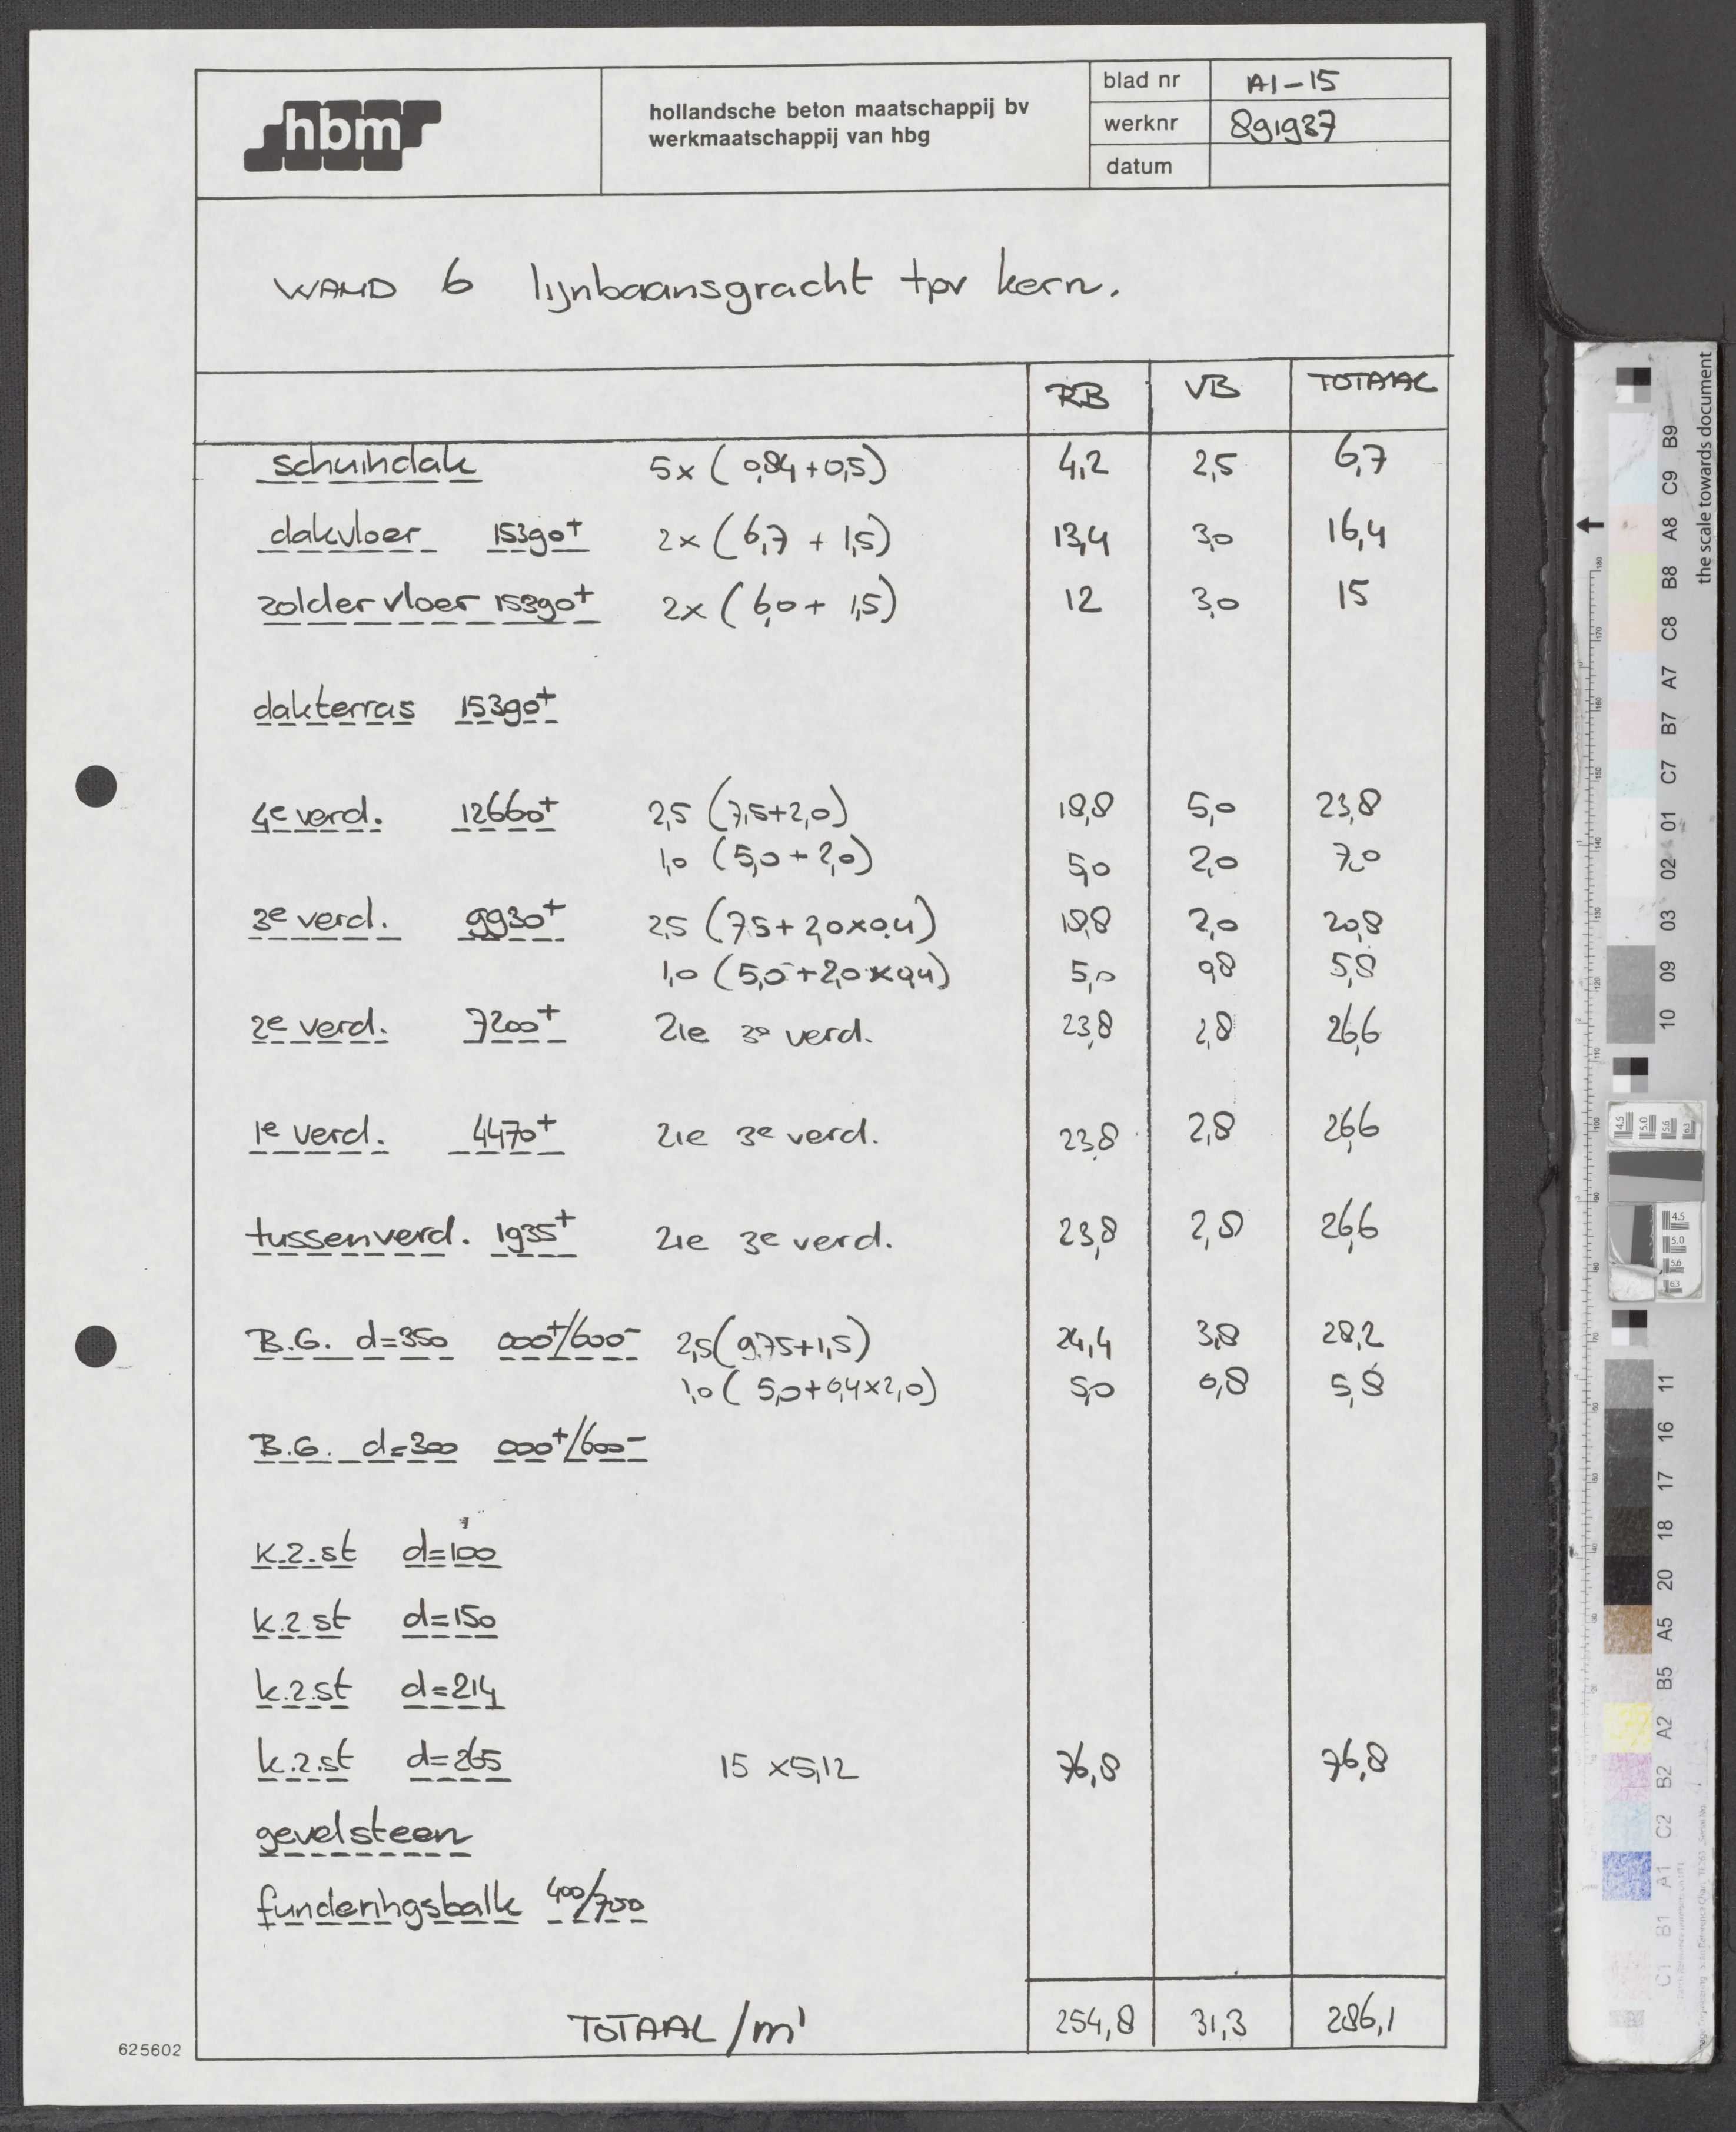 hbm
hollandsche beton maatschappij bv
werkmaatschappij van hbg
blad nr A1-15
werknr 891937
datum
WAND 6 lijnbaansgracht tpv kern.
RB VB TOTAAL
schuindak 5x (0,84+0,5) 4,2 2,5 6,7
dakvloer 15390+ 2x (6,7 + 1,5) 13,4 3,0 16,4
zoldervloer 15390+ 2x (6,0 + 1,5) 12 3,0 15
dakterras 15390+
4e verd. 12660+ 2,5 (7,5+2,0) 18,8 5,0 23,8
1,0 (5,0 + 2,0) 5,0 2,0 7,0
3e verd. 9930+ 2,5 (7,5 + 2,0x0,4) 18,8 2,0 20,8
1,0 (5,0 + 2,0 x 0,4) 5,0 0,8 5,8
2e verd. 7200+ zie 3e verd. 23,8 2,8 26,6
1e verd. 4470+ zie 3e verd. 23,8 2,8 26,6
tussenverd. 1935+ zie 3e verd. 23,8 2,8 26,6
B.G. d=350 000+/600- 2,5(9,75+1,5) 24,4 3,8 28,2
1,0 (5,0+0,4x2,0) 5,0 0,8 5,8
B.G. d=300 000+/600-
k.z.st d=100
k.z.st d=150
k.z.st d=214
k.z.st d=265 15 x5,12 76,8 76,8
gevelsteen
funderingsbalk 400/700
TOTAAL /m' 254,8 31,3 286,1
625602
the scale towards document
B9
C9
A8
B8
C8
A7
B7
C7
01
02
03
09
10
11
16
17
18
20
A5
B5
A2
B2
C2
A1
B1
C1